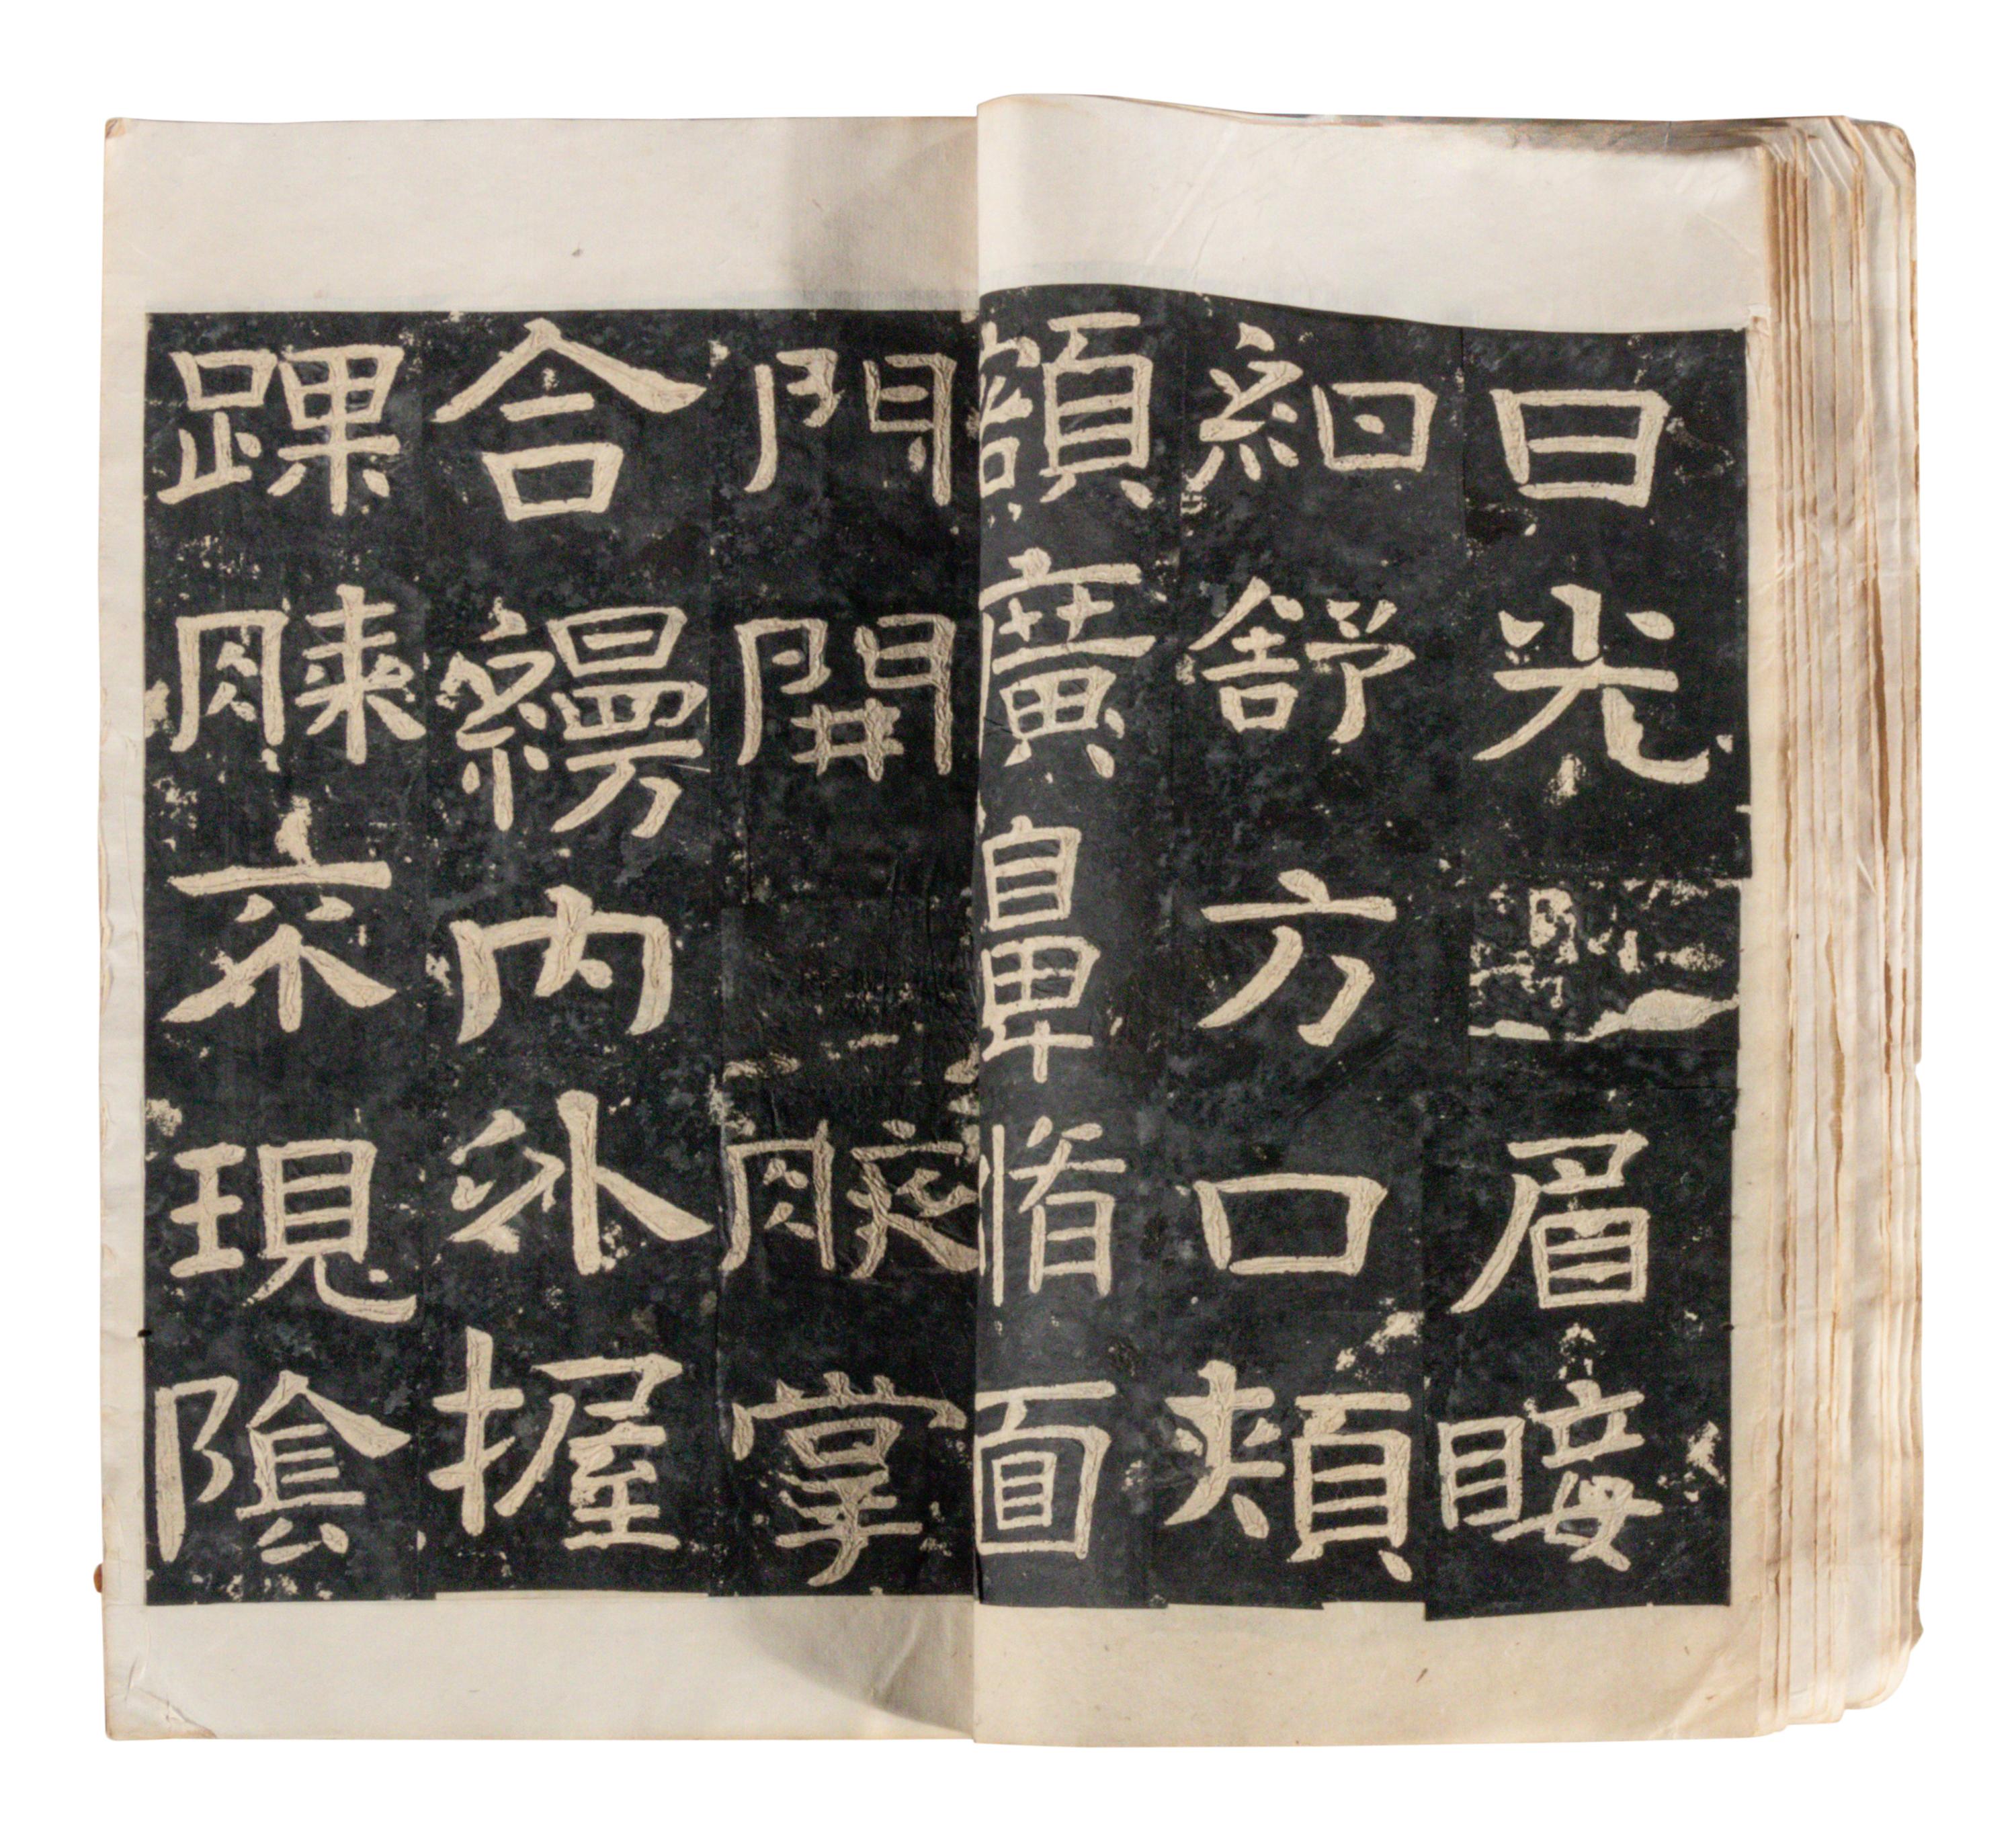 日光眉睫
細舒方口頰
額廣鼻脩面
門開腋掌
合縵内外握
踝腨不現陰